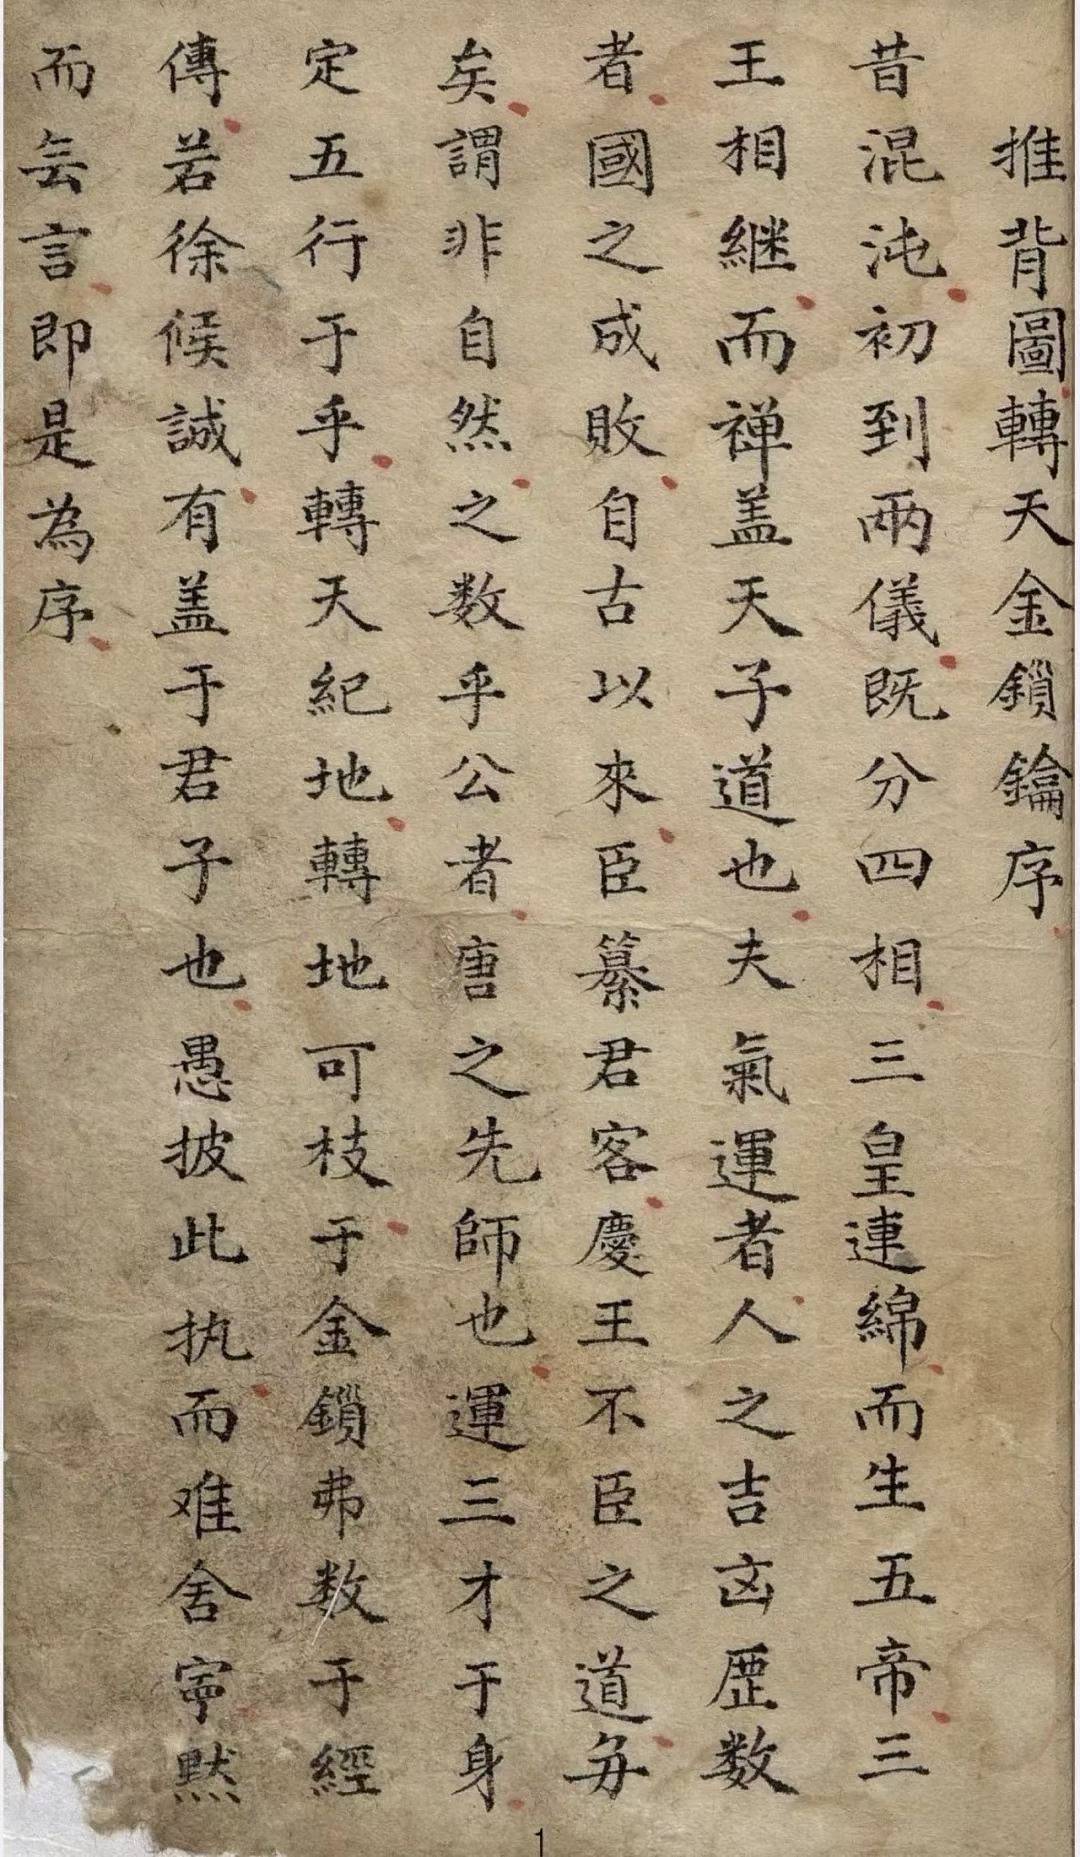 推背圖轉天金鎖鑰序
昔混沌初到兩儀既分四相三皇連綿而生五帝三
王相継而禅盖天子道也夫氣運者人之吉凶歴数
者國之成敗自古以來臣纂君客慶王不臣之道毎
矣謂非自然之数乎公者唐之先師也運三才于身
定五行于乎轉天紀地轉地可枝于金鎖弗数于經
傳若徐候誠有盖于君子也愚披此执而难舍寕默
而无言即是為序
1